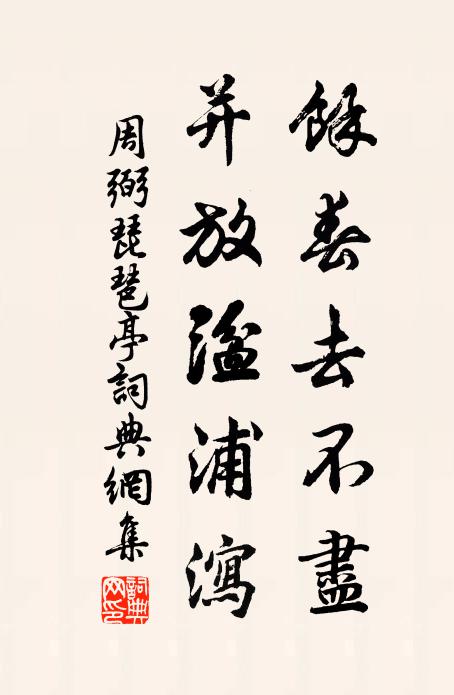 餘春去不盡
并放湓浦瀉
周弼琵琶亭詞典網集
詞典网印